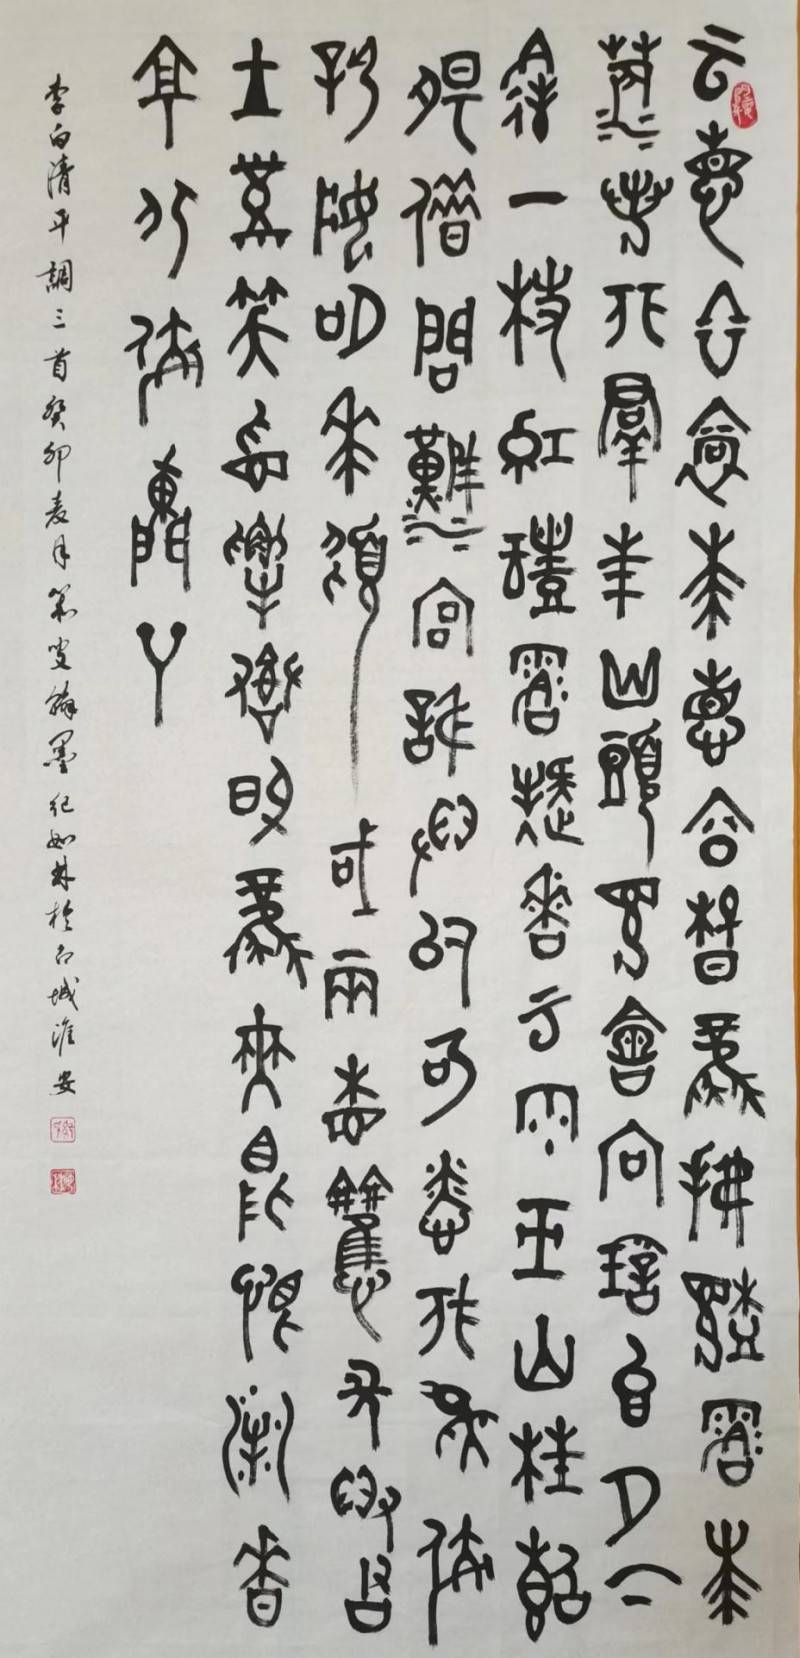 云想衣裳花想容春風拂檻露華
濃若非群玉山頭見會向瑤臺月下
逢一枝紅豔露凝香云雨巫山枉斷
腸借問漢宮誰得似可憐飛燕倚
新妝名花傾國兩相歡長得君
王帶笑看解釋春風無限恨沉香
亭北倚闌干
李白清平調三首癸卯麦月叟翰墨紀如林於城淮安